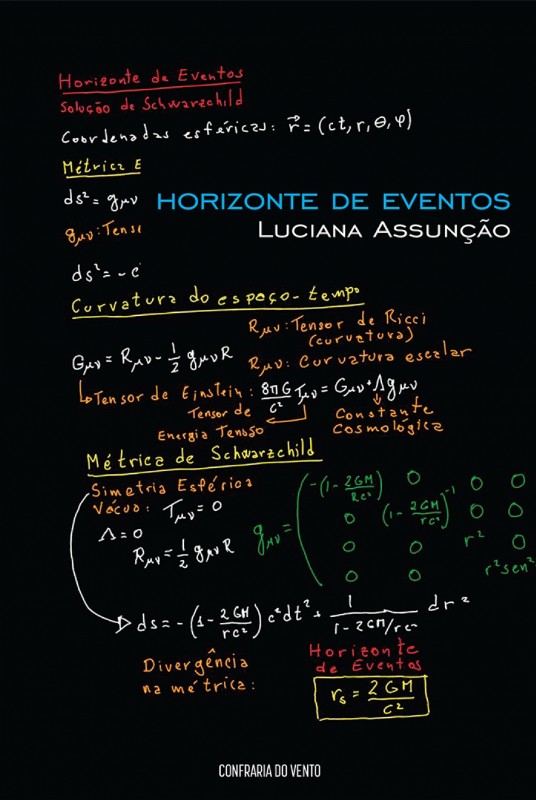 Horizonte de Eventos
Solução de Schwarzchild
Coordenadas esféricas: r⃗ = (ct, r, θ, φ)
Métrica E
ds² = gμν
HORIZONTE DE EVENTOS
gμν: Tens
LUCIANA ASSUNÇÃO
ds² = - c
Curvatura do espaço-tempo
Rμν: Tensor de Ricci
(curvatura)
Gμν = Rμν - 1/2 gμν R
Rμν: Curvatura escalar
↳ Tensor de Einstein: 8πG/c² Tμν = Gμν + Λgμν
Tensor de
Energia Tensão
Constante
Cosmológica
Métrica de Schwarzchild
Simetria Esférica
Vácuo: Tμν = 0
Λ = 0
Rμν = 1/2 gμν R
gμν = ( -(1 - 2GM/Rc²) 0 0 0
0 (1 - 2GM/rc²)⁻¹ 0 0
0 0 r² 0
0 0 r²sen²
ds = -(1 - 2GM/rc²) c²dt² + 1/(1 - 2GM/rc) dr²
Divergência
na métrica:
Horizonte
de Eventos
rs = 2GM/c²
CONFRARIA DO VENTO